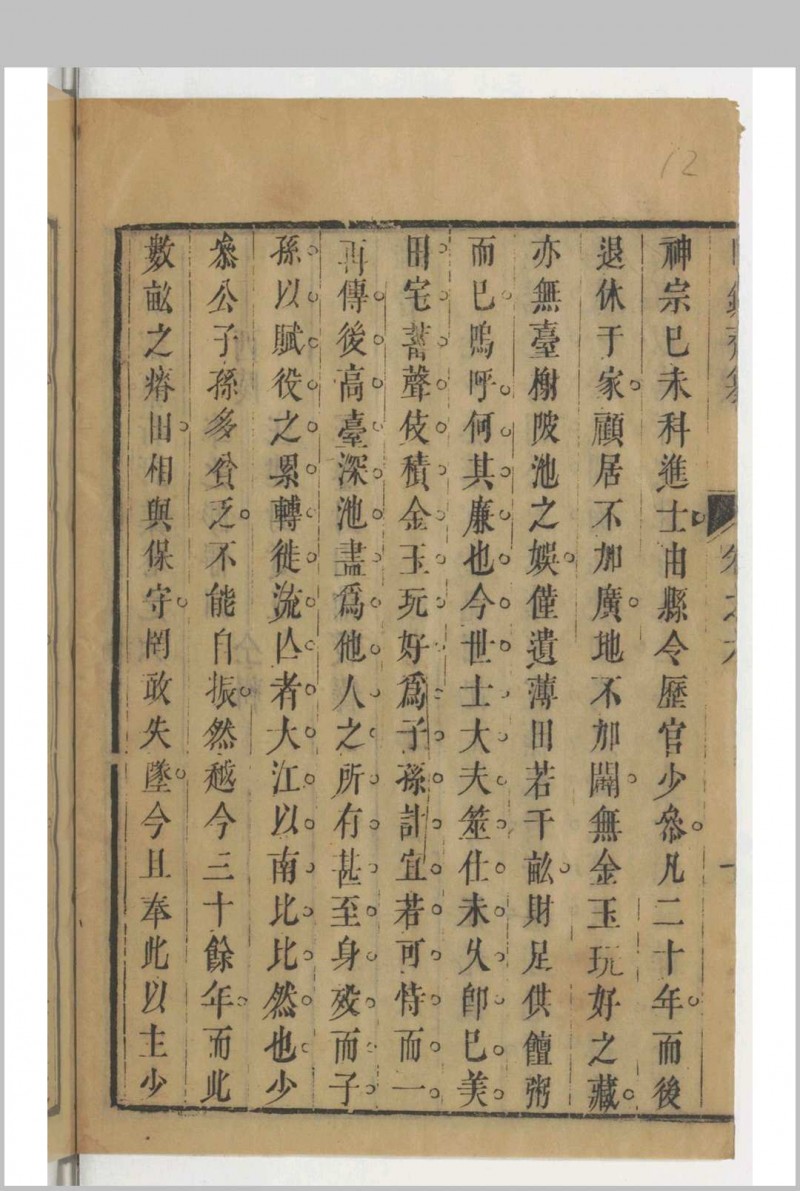 12
卷之六
一
神宗已未科進士由縣令歷官少叅凡二十年而後
退休于家顧居不加廣地不加闢無金玉玩好之藏
亦無臺榭陂池之娛僅遺薄田若干畝財足供饘粥
而已嗚呼何其廉也今世士大夫筮仕未久卽已美
田宅蓄聲伎積金玉玩好爲子孫計宜若可恃而一
再傳後高臺深池盡爲他人之所有甚至身歿而子
孫以賦役之累轉徙流亾者大江以南比比然也少
叅公子孫多貧乏不能自振然越今三十餘年而此
數畝之瘠田相與保守罔敢失墜今且奉此以主少